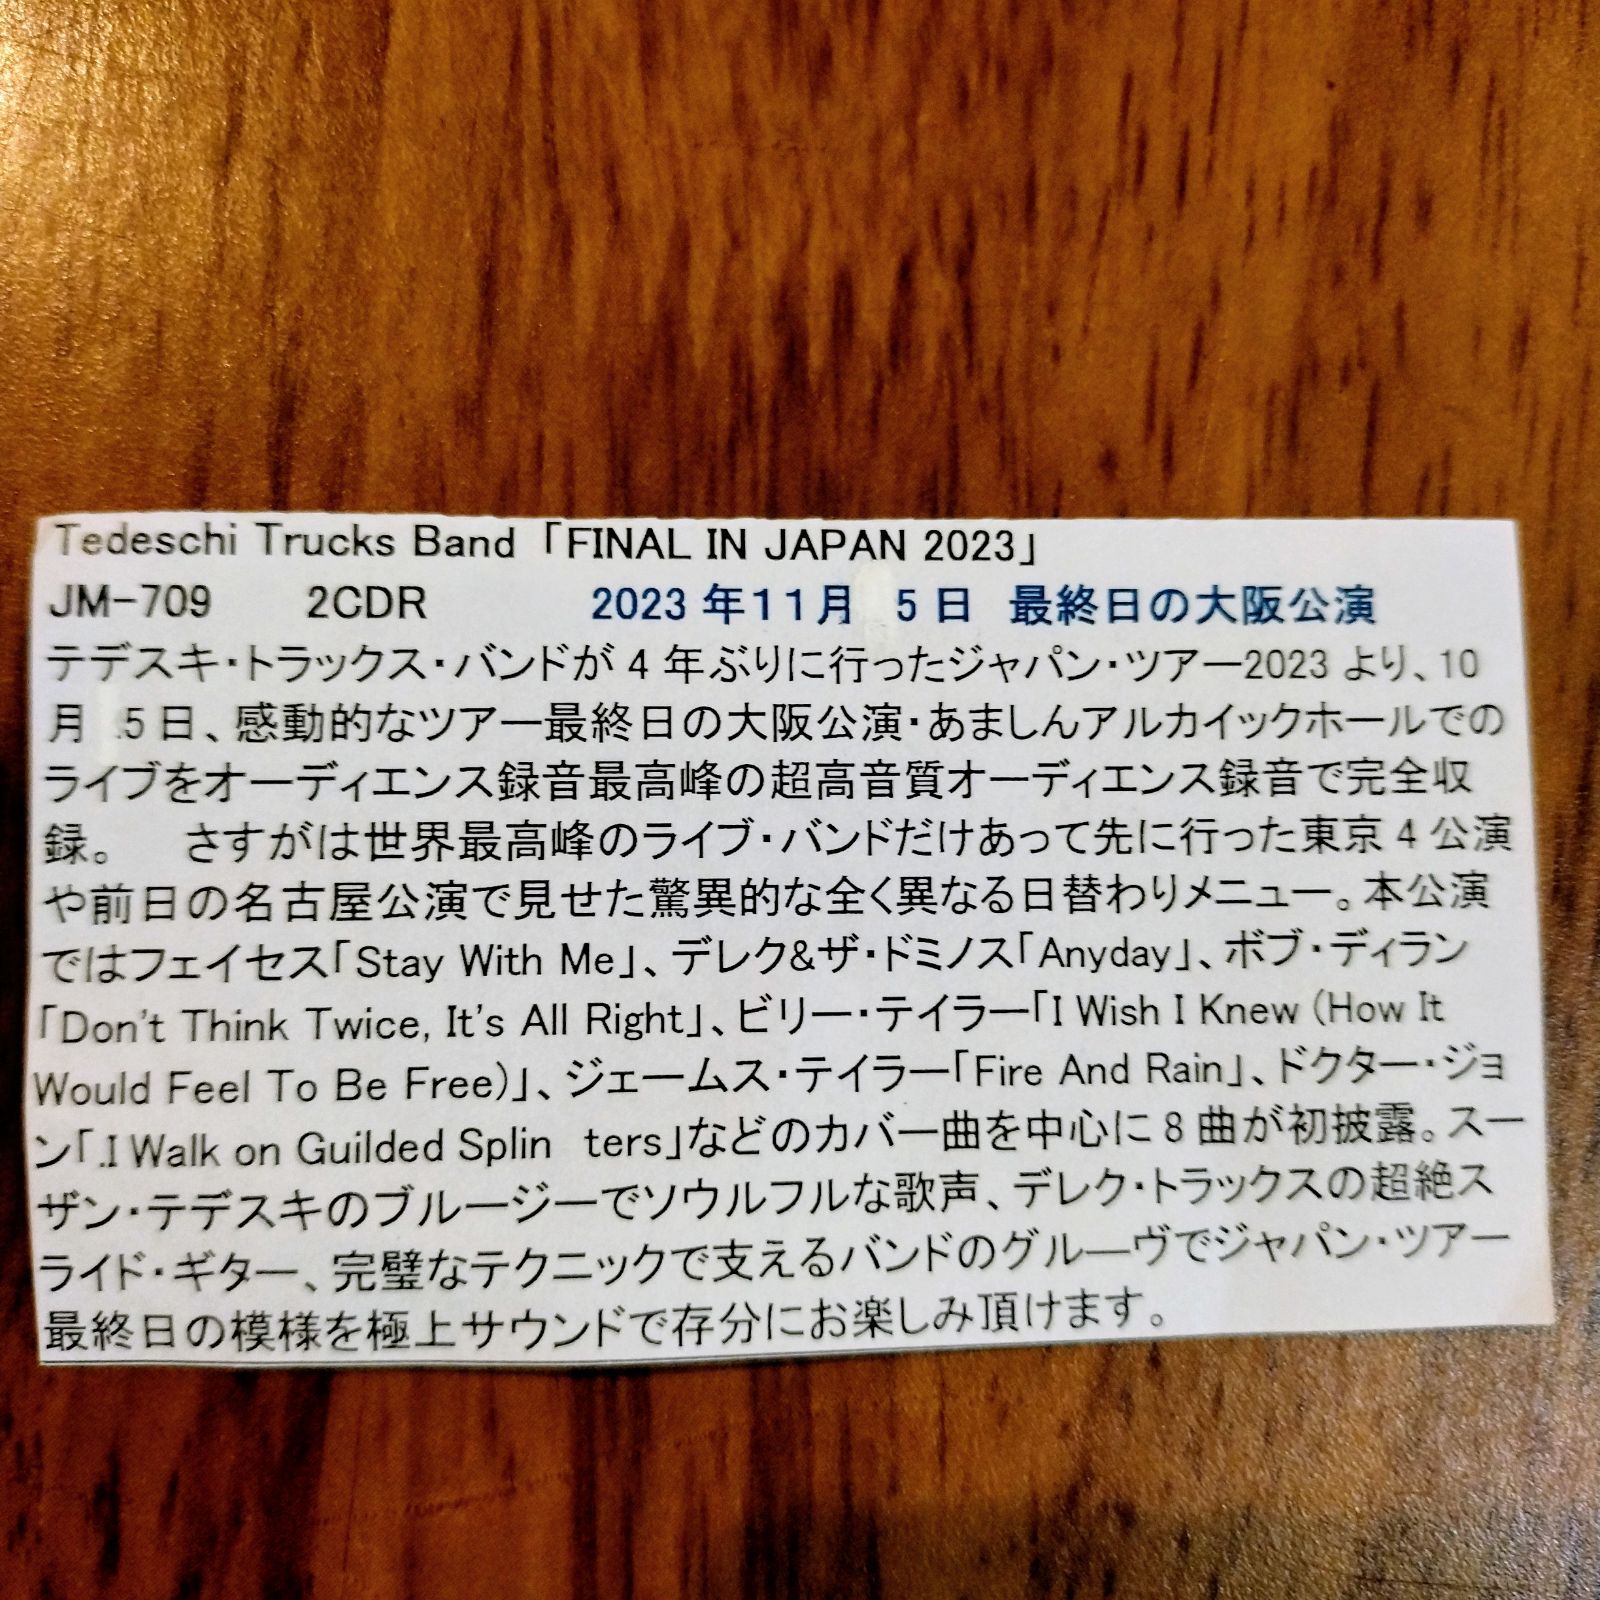 Tedeschi Trucks Band「FINAL IN JAPAN 2023」
JM-709 2CDR 2023年11月 5日 最終日の大阪公演
テデスキ・トラックス・バンドが4年ぶりに行ったジャパン・ツアー2023より、10
月 5日、感動的なツアー最終日の大阪公演・あましんアルカイックホールでの
ライブをオーディエンス録音最高峰の超高音質オーディエンス録音で完全収
録。 さすがは世界最高峰のライブ・バンドだけあって先に行った東京4公演
や前日の名古屋公演で見せた驚異的な全く異なる日替わりメニュー。本公演
ではフェイセス「Stay With Me」、デレク&ザ・ドミノス「Anyday」、ボブ・ディラン
「Don't Think Twice, It's All Right」、ビリー・テイラー「I Wish I Knew (How It
Would Feel To Be Free)」、ジェームス・テイラー「Fire And Rain」、ドクター・ジョ
ン「.I Walk on Guilded Splin ters」などのカバー曲を中心に8曲が初披露。スー
ザン・テデスキのブルージーでソウルフルな歌声、デレク・トラックスの超絶ス
ライド・ギター、完璧なテクニックで支えるバンドのグルーヴでジャパン・ツアー
最終日の模様を極上サウンドで存分にお楽しみ頂けます。